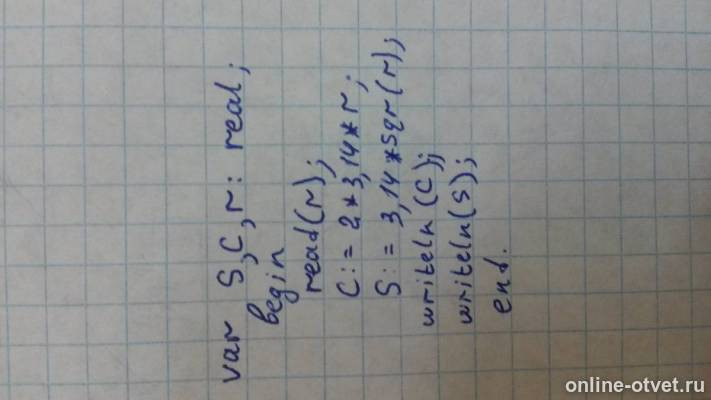 var S,C,r: real;
begin
read(r);
C:=2*3,14*r;
S:=3,14*sqr(r);
writeln(C);
writeln(S);
end.
online-otvet.ru